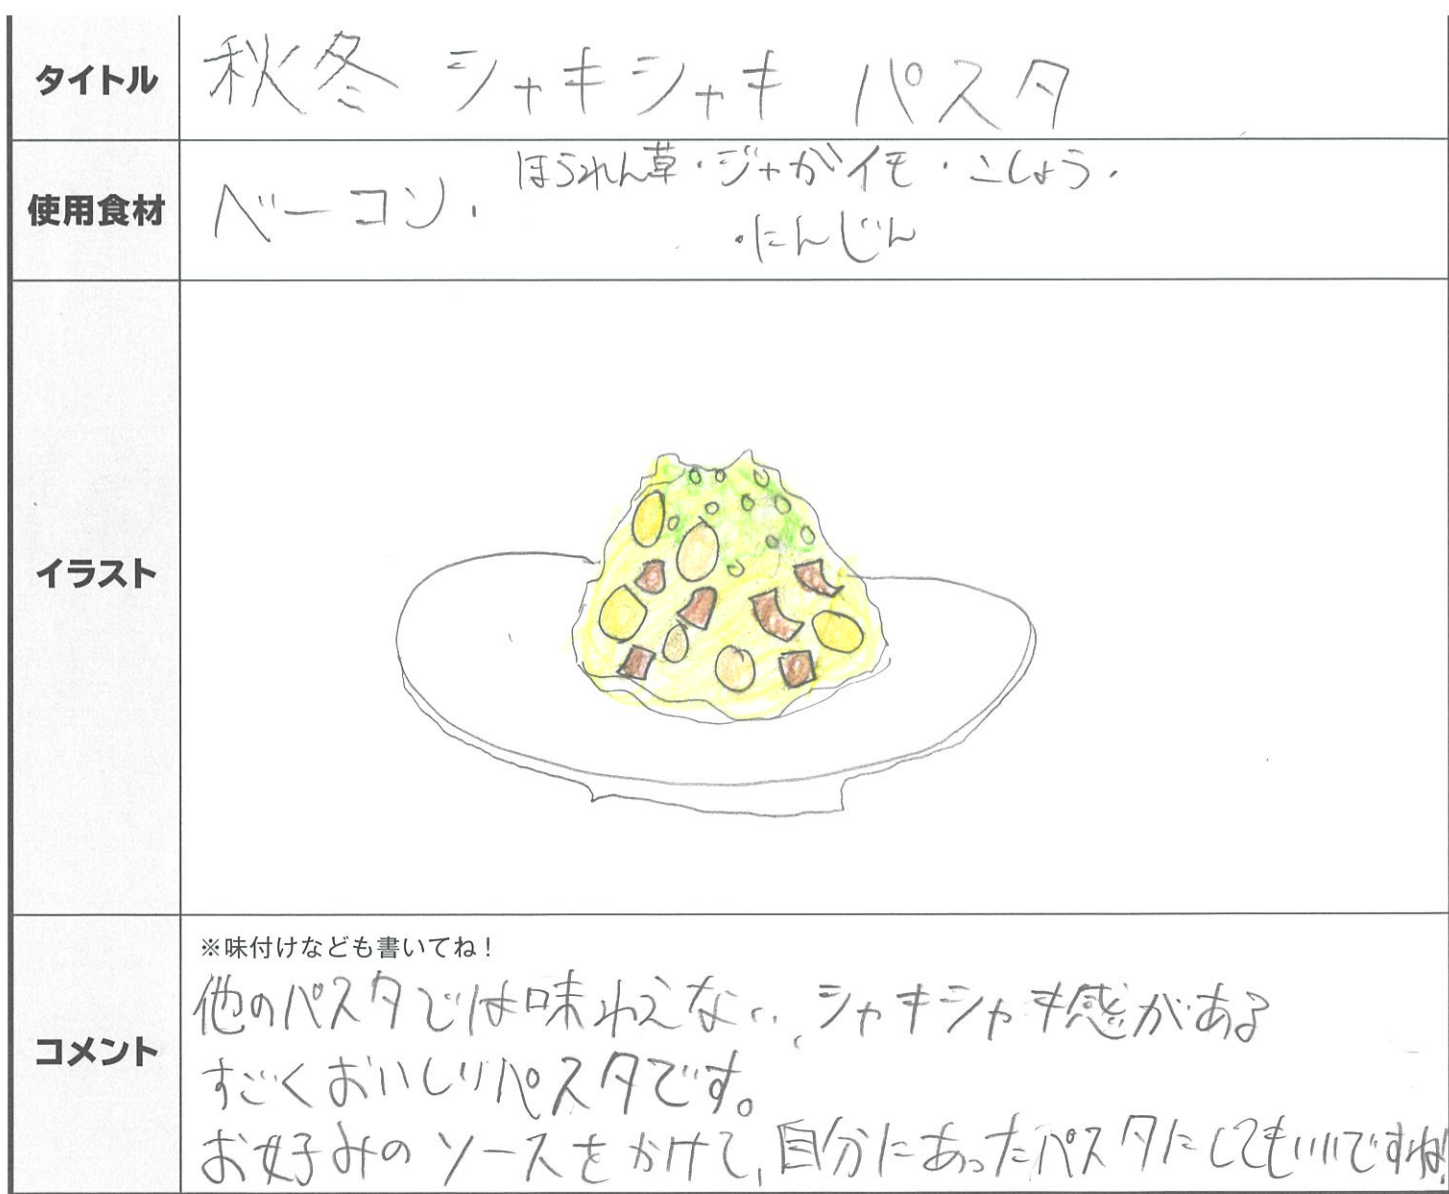 タイトル
秋冬 シャキシャキ パスタ
使用食材
ベーコン・ほうれん草・ジャがイモ・こしょう・
・にんじん
イラスト
コメント
※味付けなども書いてね!
他のパスタでは味わえない、シャキシャキ感がある
すごくおいしいパスタです。
お好みのソースをかけて、自分にあったパスタにしてもいいですね!